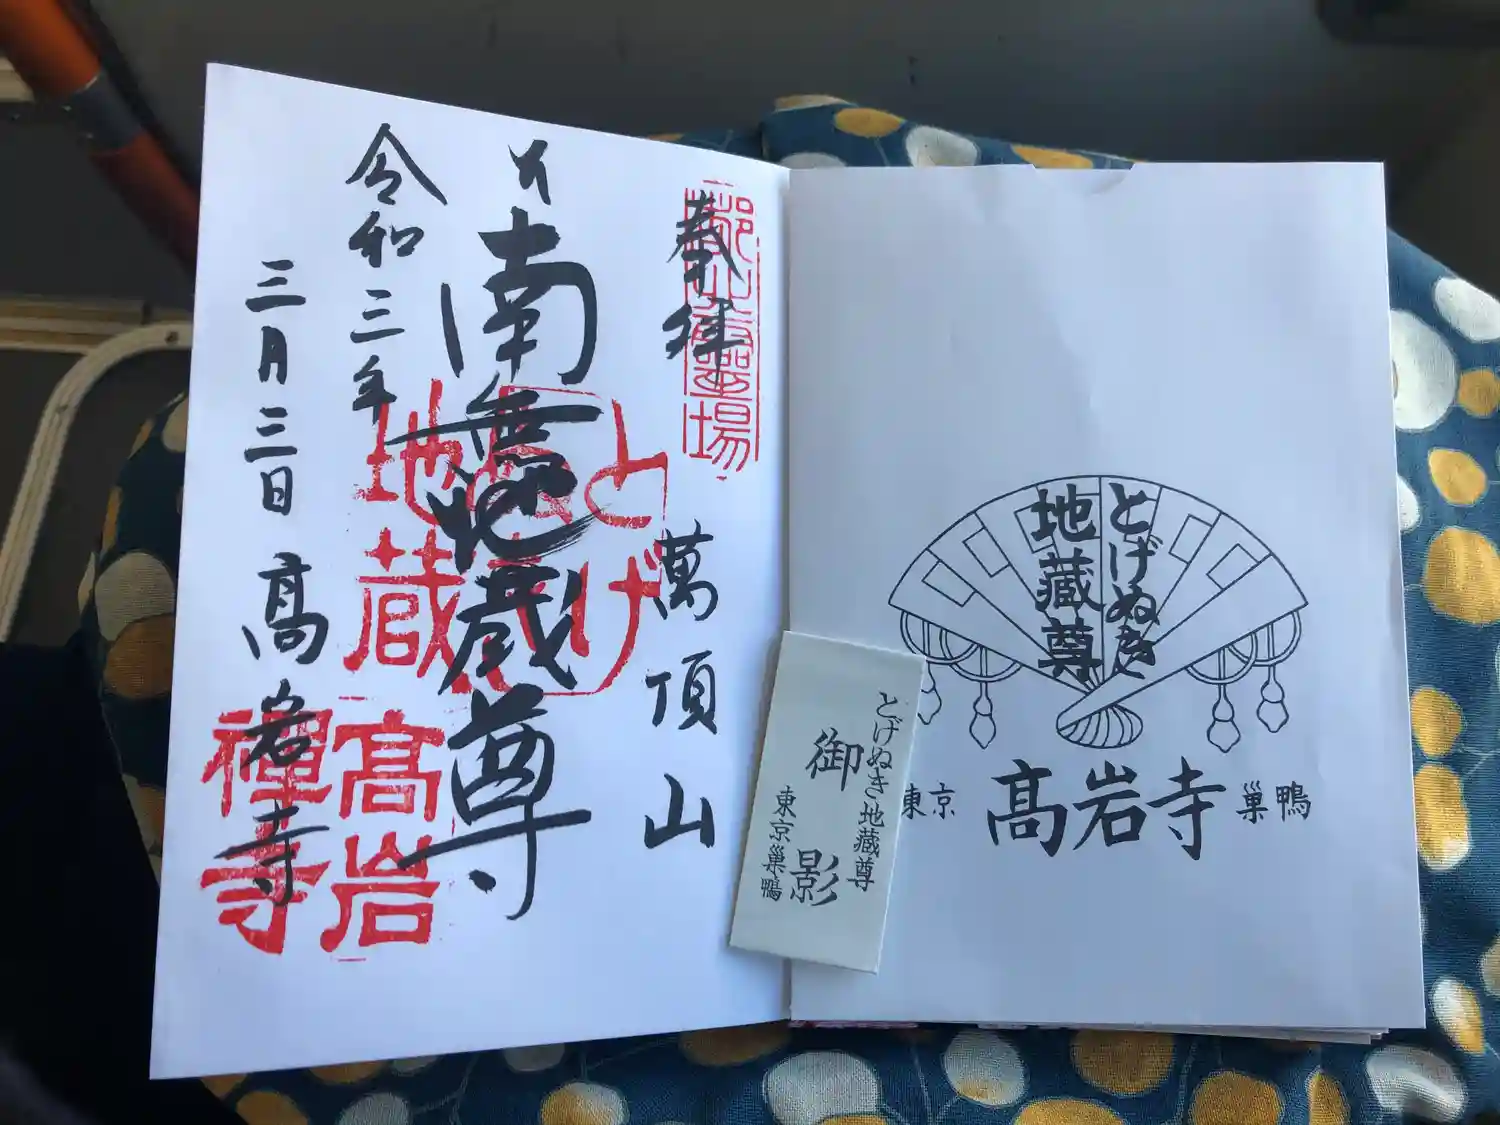 奉拝
萬頂山
南無地蔵尊
令和三年
三月三日
高岩寺
霊場
とげ
地蔵
高岩
禅寺
とげぬき
地蔵尊
東京
高岩寺
巣鴨
とげぬき地蔵尊
御影
東京巣鴨